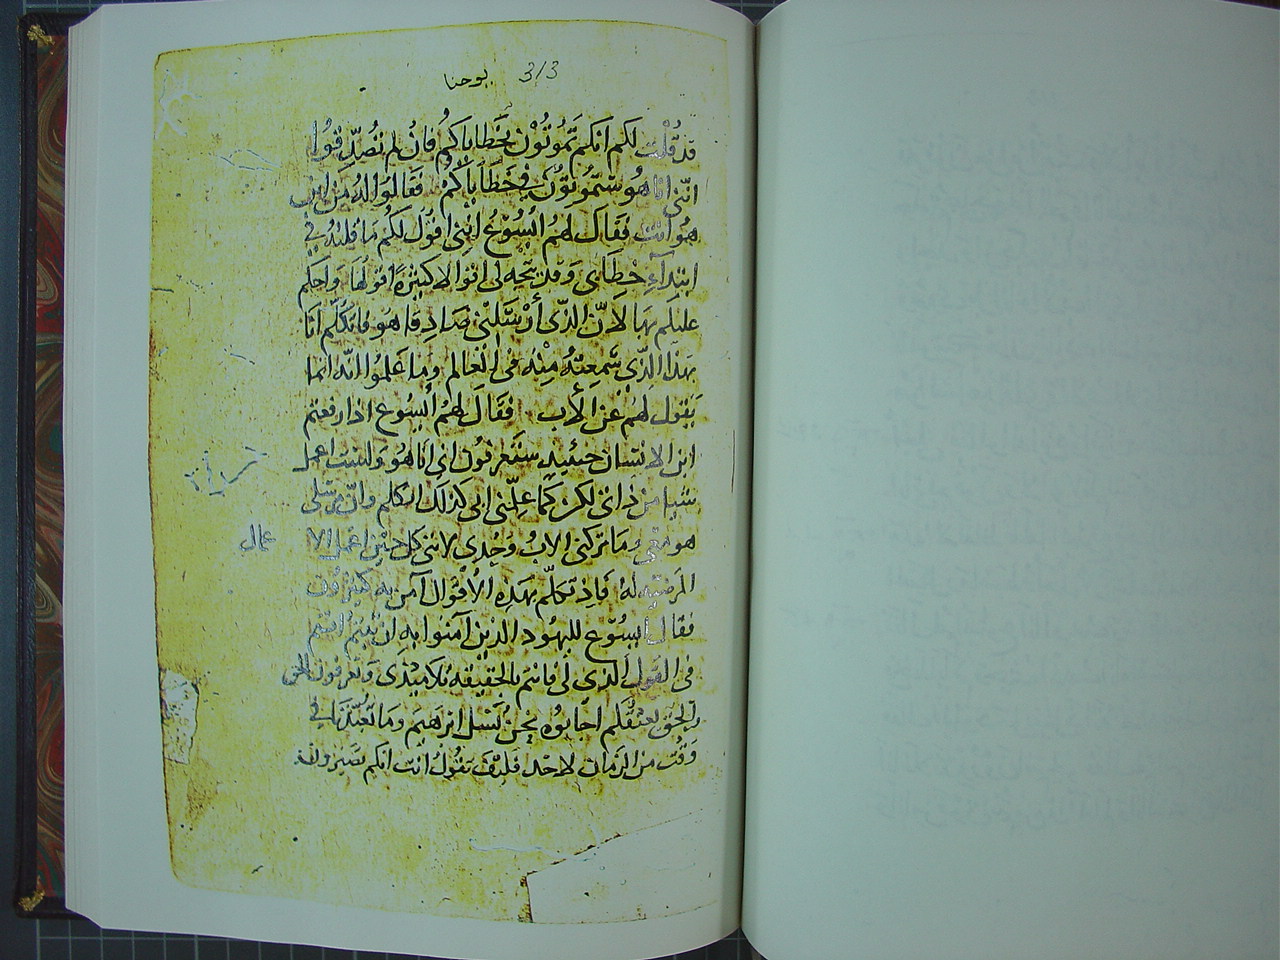 يوحنا 313
قد قلت لكم انكم تموتون بخطاياكم فان لم تصدقوا
انني انا هو ستموتون في خطاياكم فقالوا له من اين
هو انت فقال لهم ايسوع انني اقول لكم ما قلته في
ابتداء خطابي وقد يتجه لي اقوالا كثيرة اقولها واحكم
عليكم بها لان الذي ارسلني صادقا هو فاتكلم انا
بهذا الذي سمعته منه في العالم وما علموا انه انما
يقول لهم عن الاب فقال لهم ايسوع اذا رفعتم
ابن الانسان حينيد ستعرفون اني انا هو ولست اعمل
شيا من ذاتي لكن كما علمني ابي كذلك اتكلم وان مرسلي
هو معي وما تركني الاب وحدي لانني كل حين اعمل الا
عمال
المرضيه له فاذ تكلم بهذه الاقوال آمن به كثيرون
فقال ايسوع لليهود الذين آمنوا به ان ثبتم انتم
في القول الذي لي فانتم بالحقيقه تلاميذي وتعرفون الحق
والحق يعتقكم اجابوه نحن نسل ابرهيم وما تعبدنا في
وقت من الزمان لاحد فكيف تقول انت انكم ستصيرون